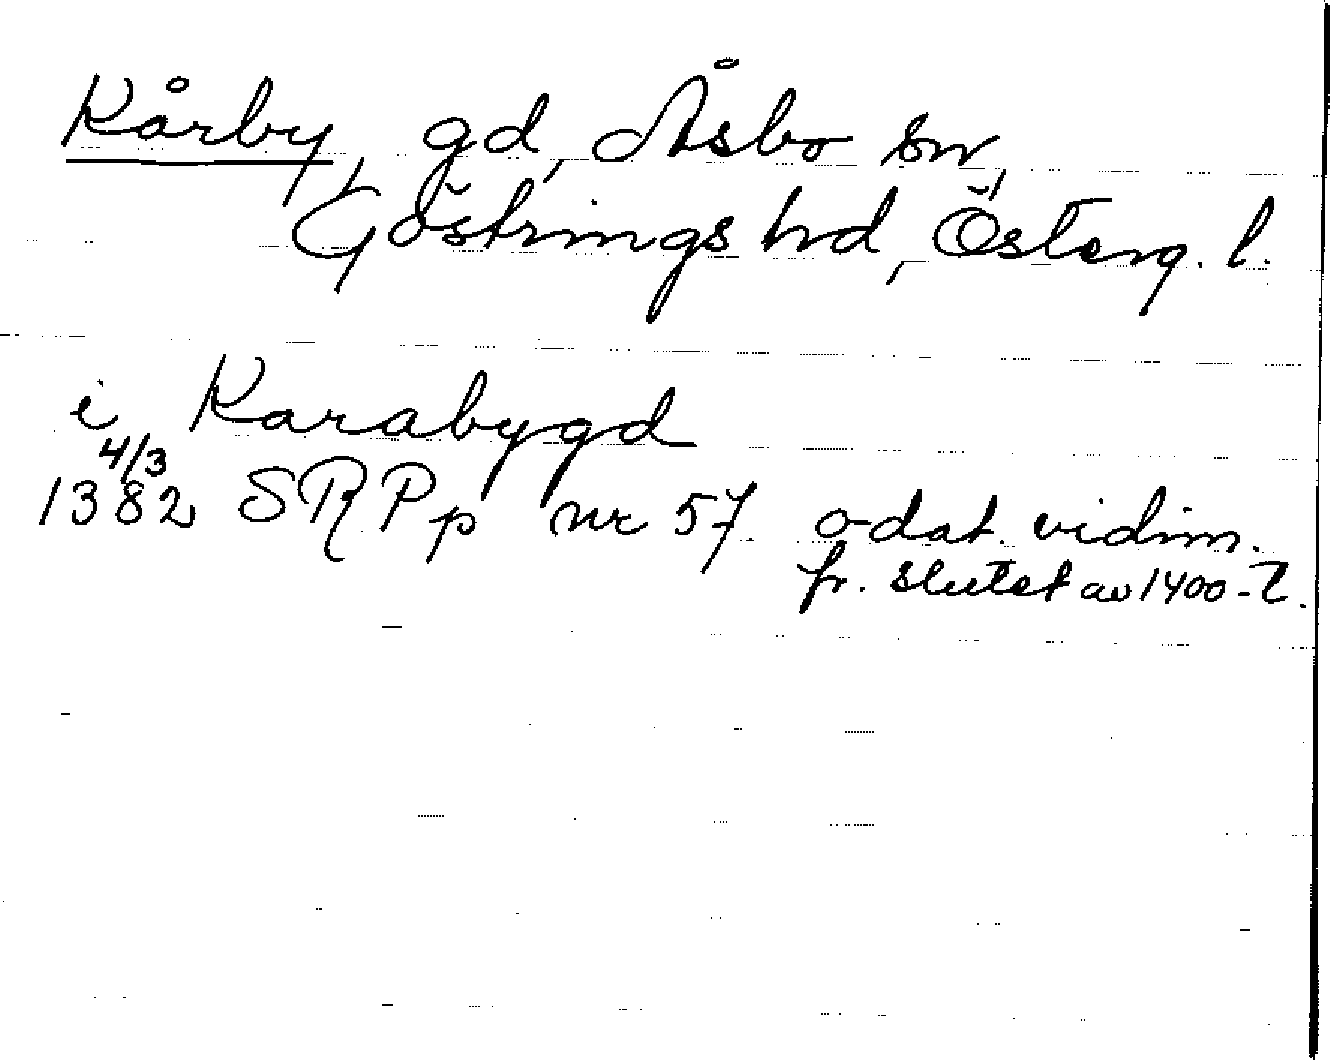 Kårby, gd, Åsbo sn,
Göstrings hd, Österg. l.
i Karabygd
4/3
1382 SRPp nr 57 odat. vidim.
fr. slutet av 1400-t.